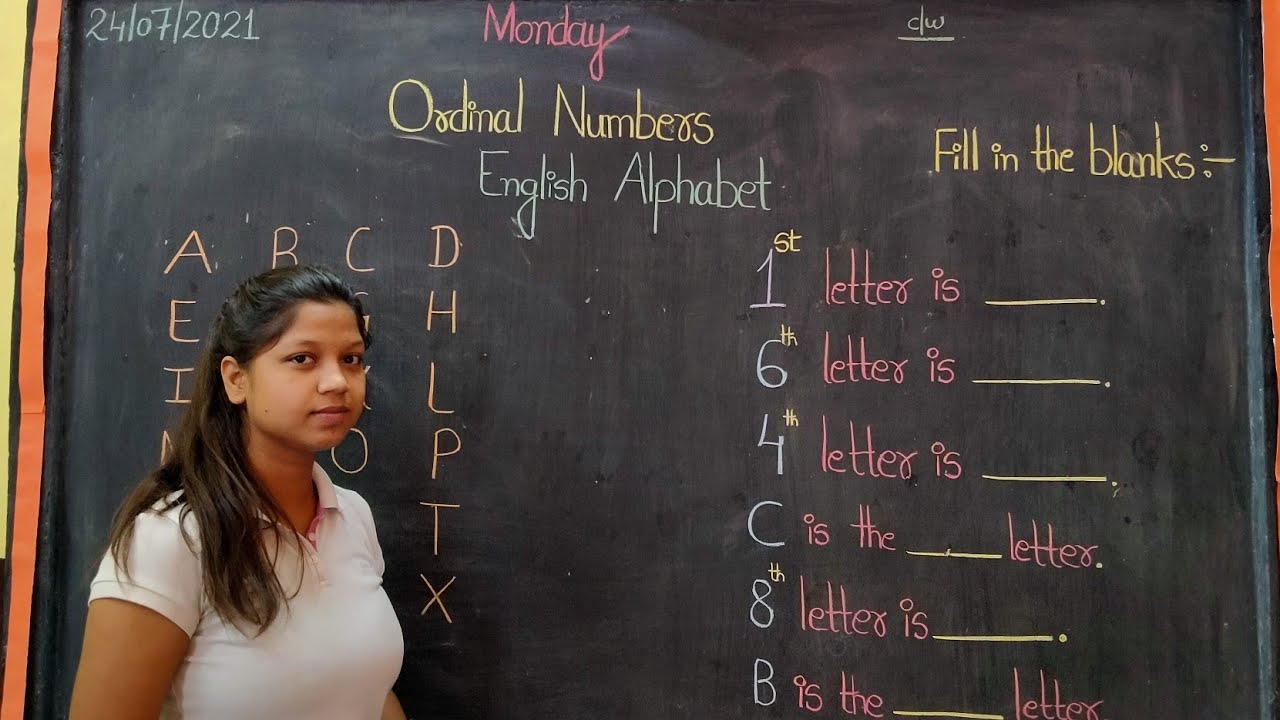 24/07/2021 Monday c/w
Ordinal Numbers
English Alphabet
A B C D
E G H
I K L
M O P
T
X
Fill in the blanks:-
1st letter is ______.
6th letter is ______.
4th letter is ______.
C is the ______ letter.
8th letter is ______.
B is the ______ letter